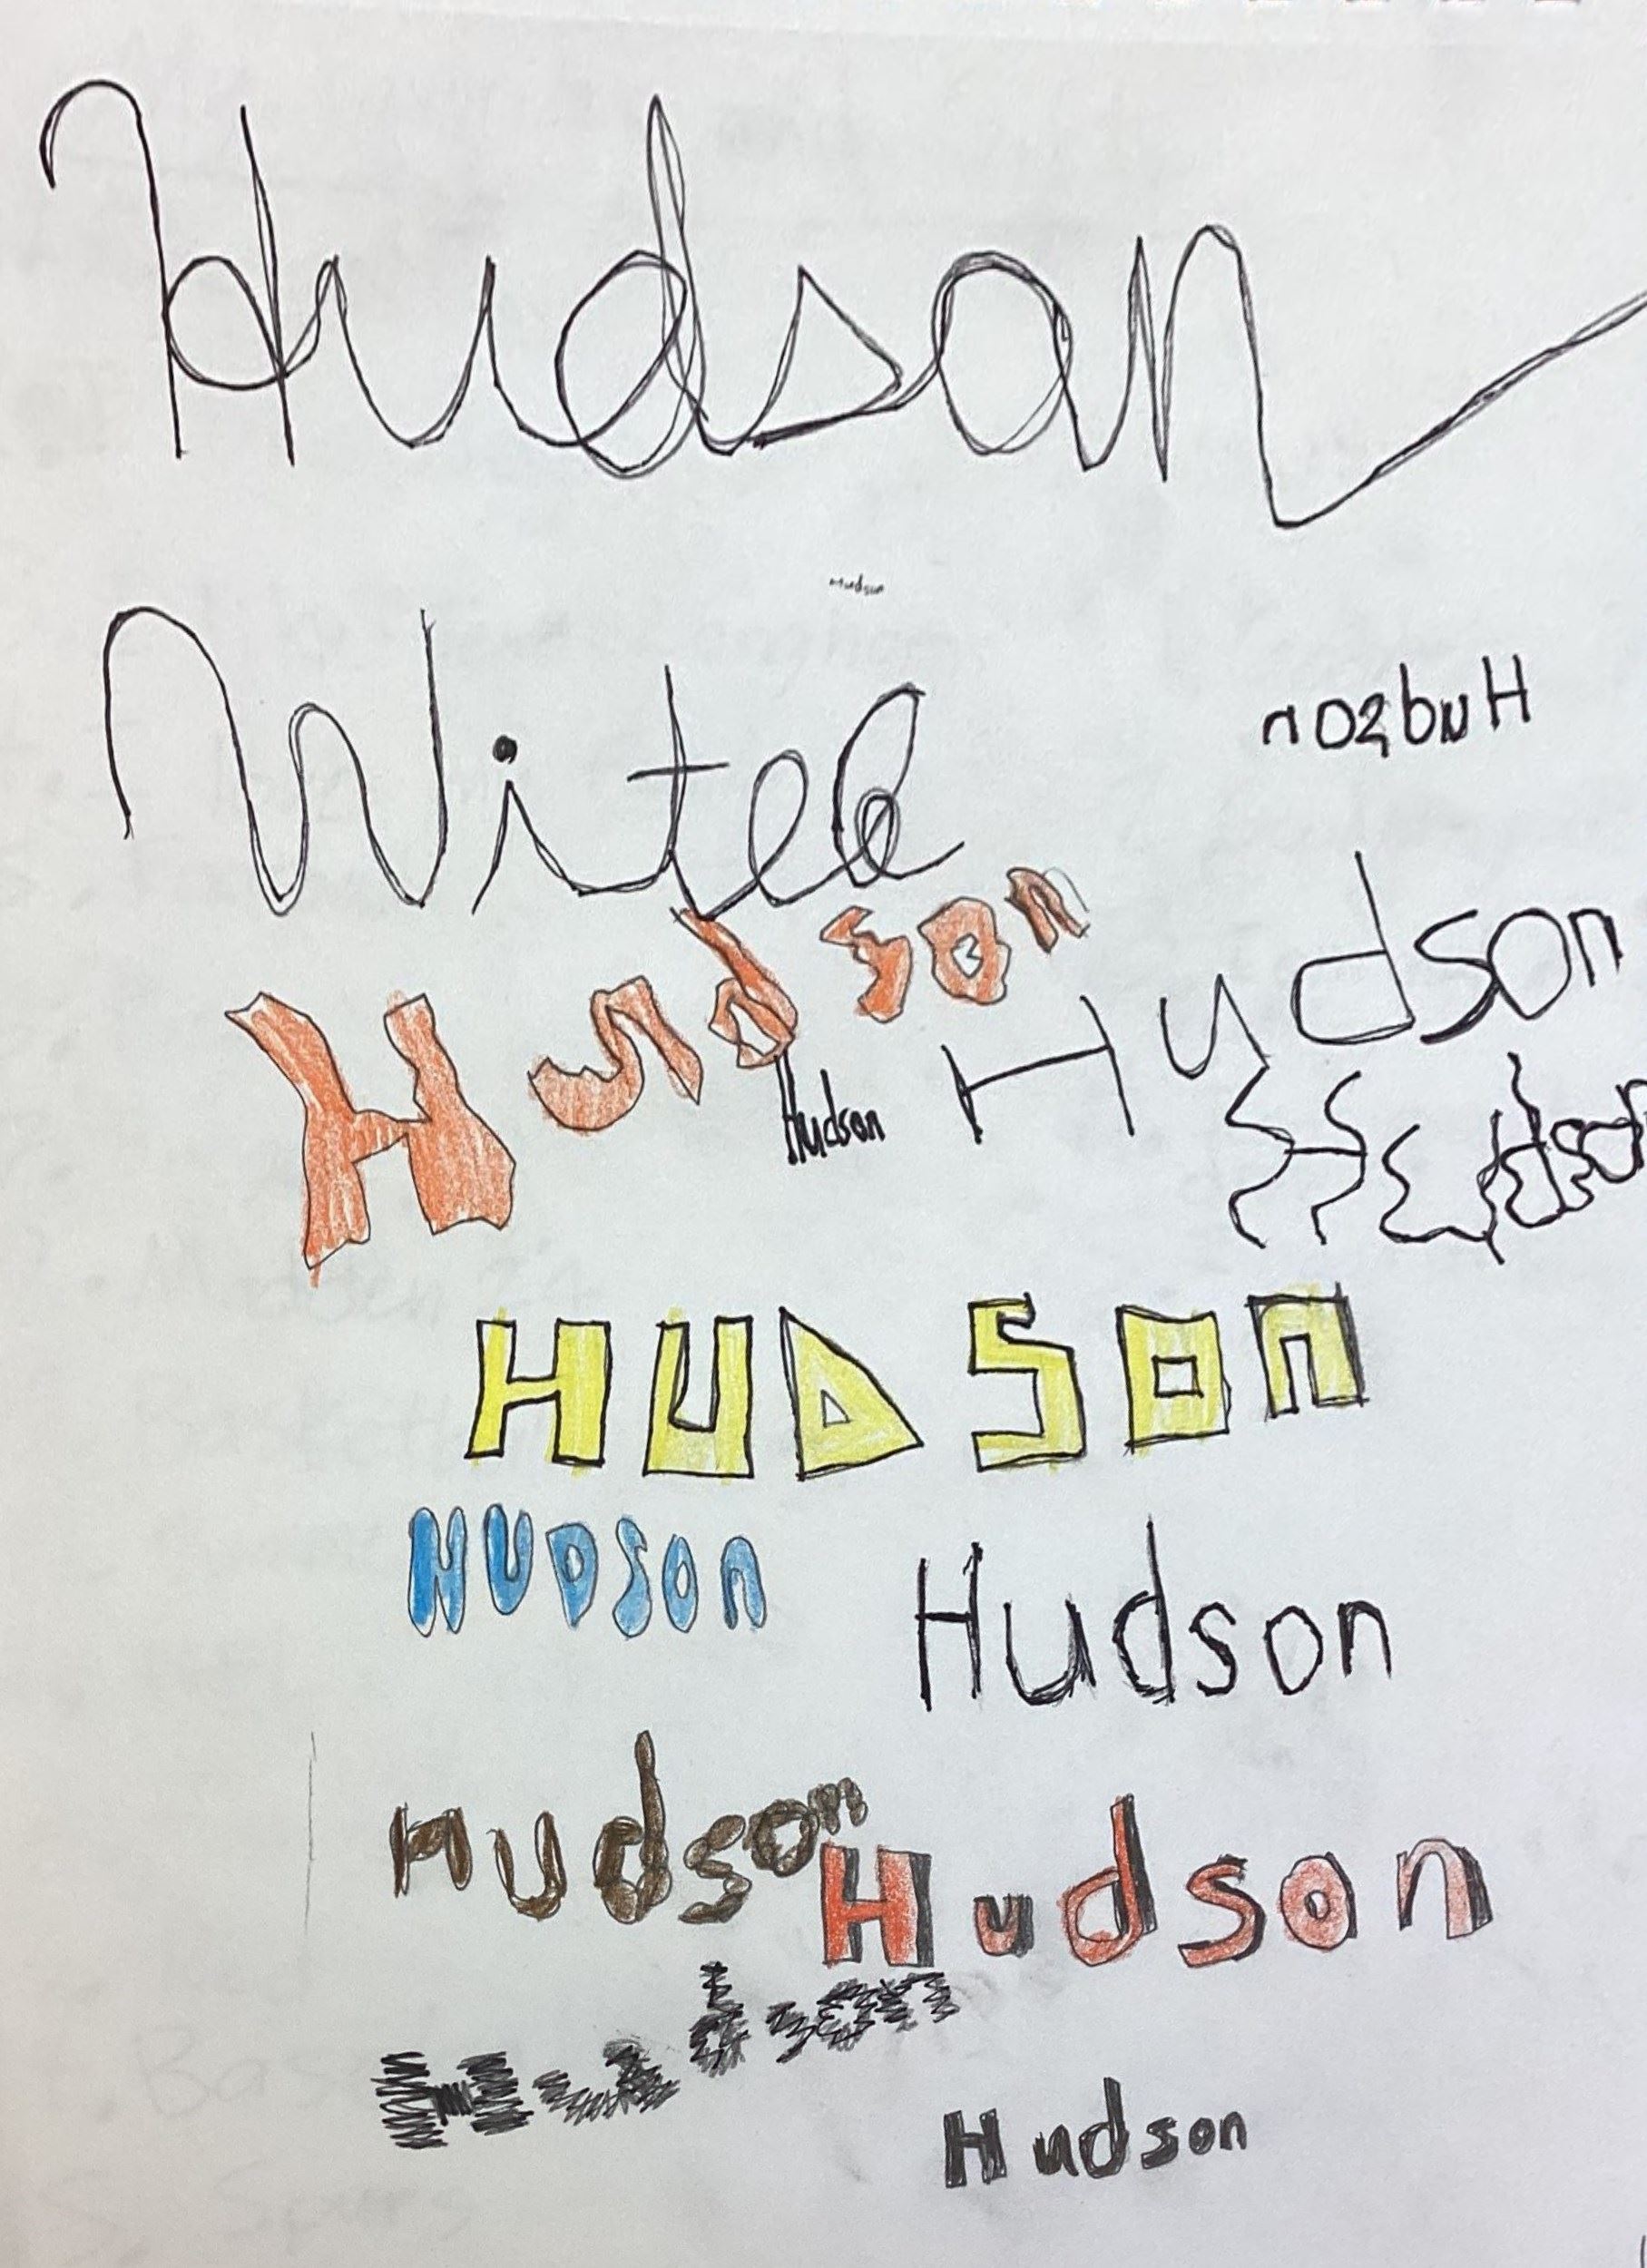 Hudson
Hudson
Witek
Hudson
Hudson
Hudson
Hudson
Hudson
HUDSOn
HUDSOn
Hudson
Hudson
Hudson
Hudson
Hudson